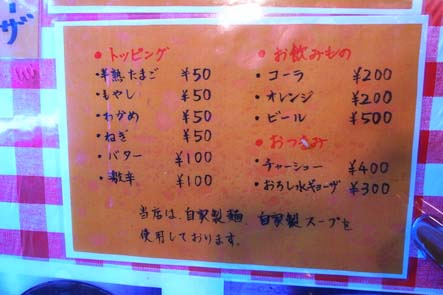 ザ
●トッピング
・半熟たまご ¥50
・もやし ¥50
・わかめ ¥50
・ねぎ ¥50
・バター ¥100
・激辛 ¥100
●お飲みもの
・コーラ ¥200
・オレンジ ¥200
・ビール ¥500
●おつまみ
・チャーシュー ¥400
・おろし水ギョーザ ¥300
当店は、自家製麺、自家製スープを
使用しております。